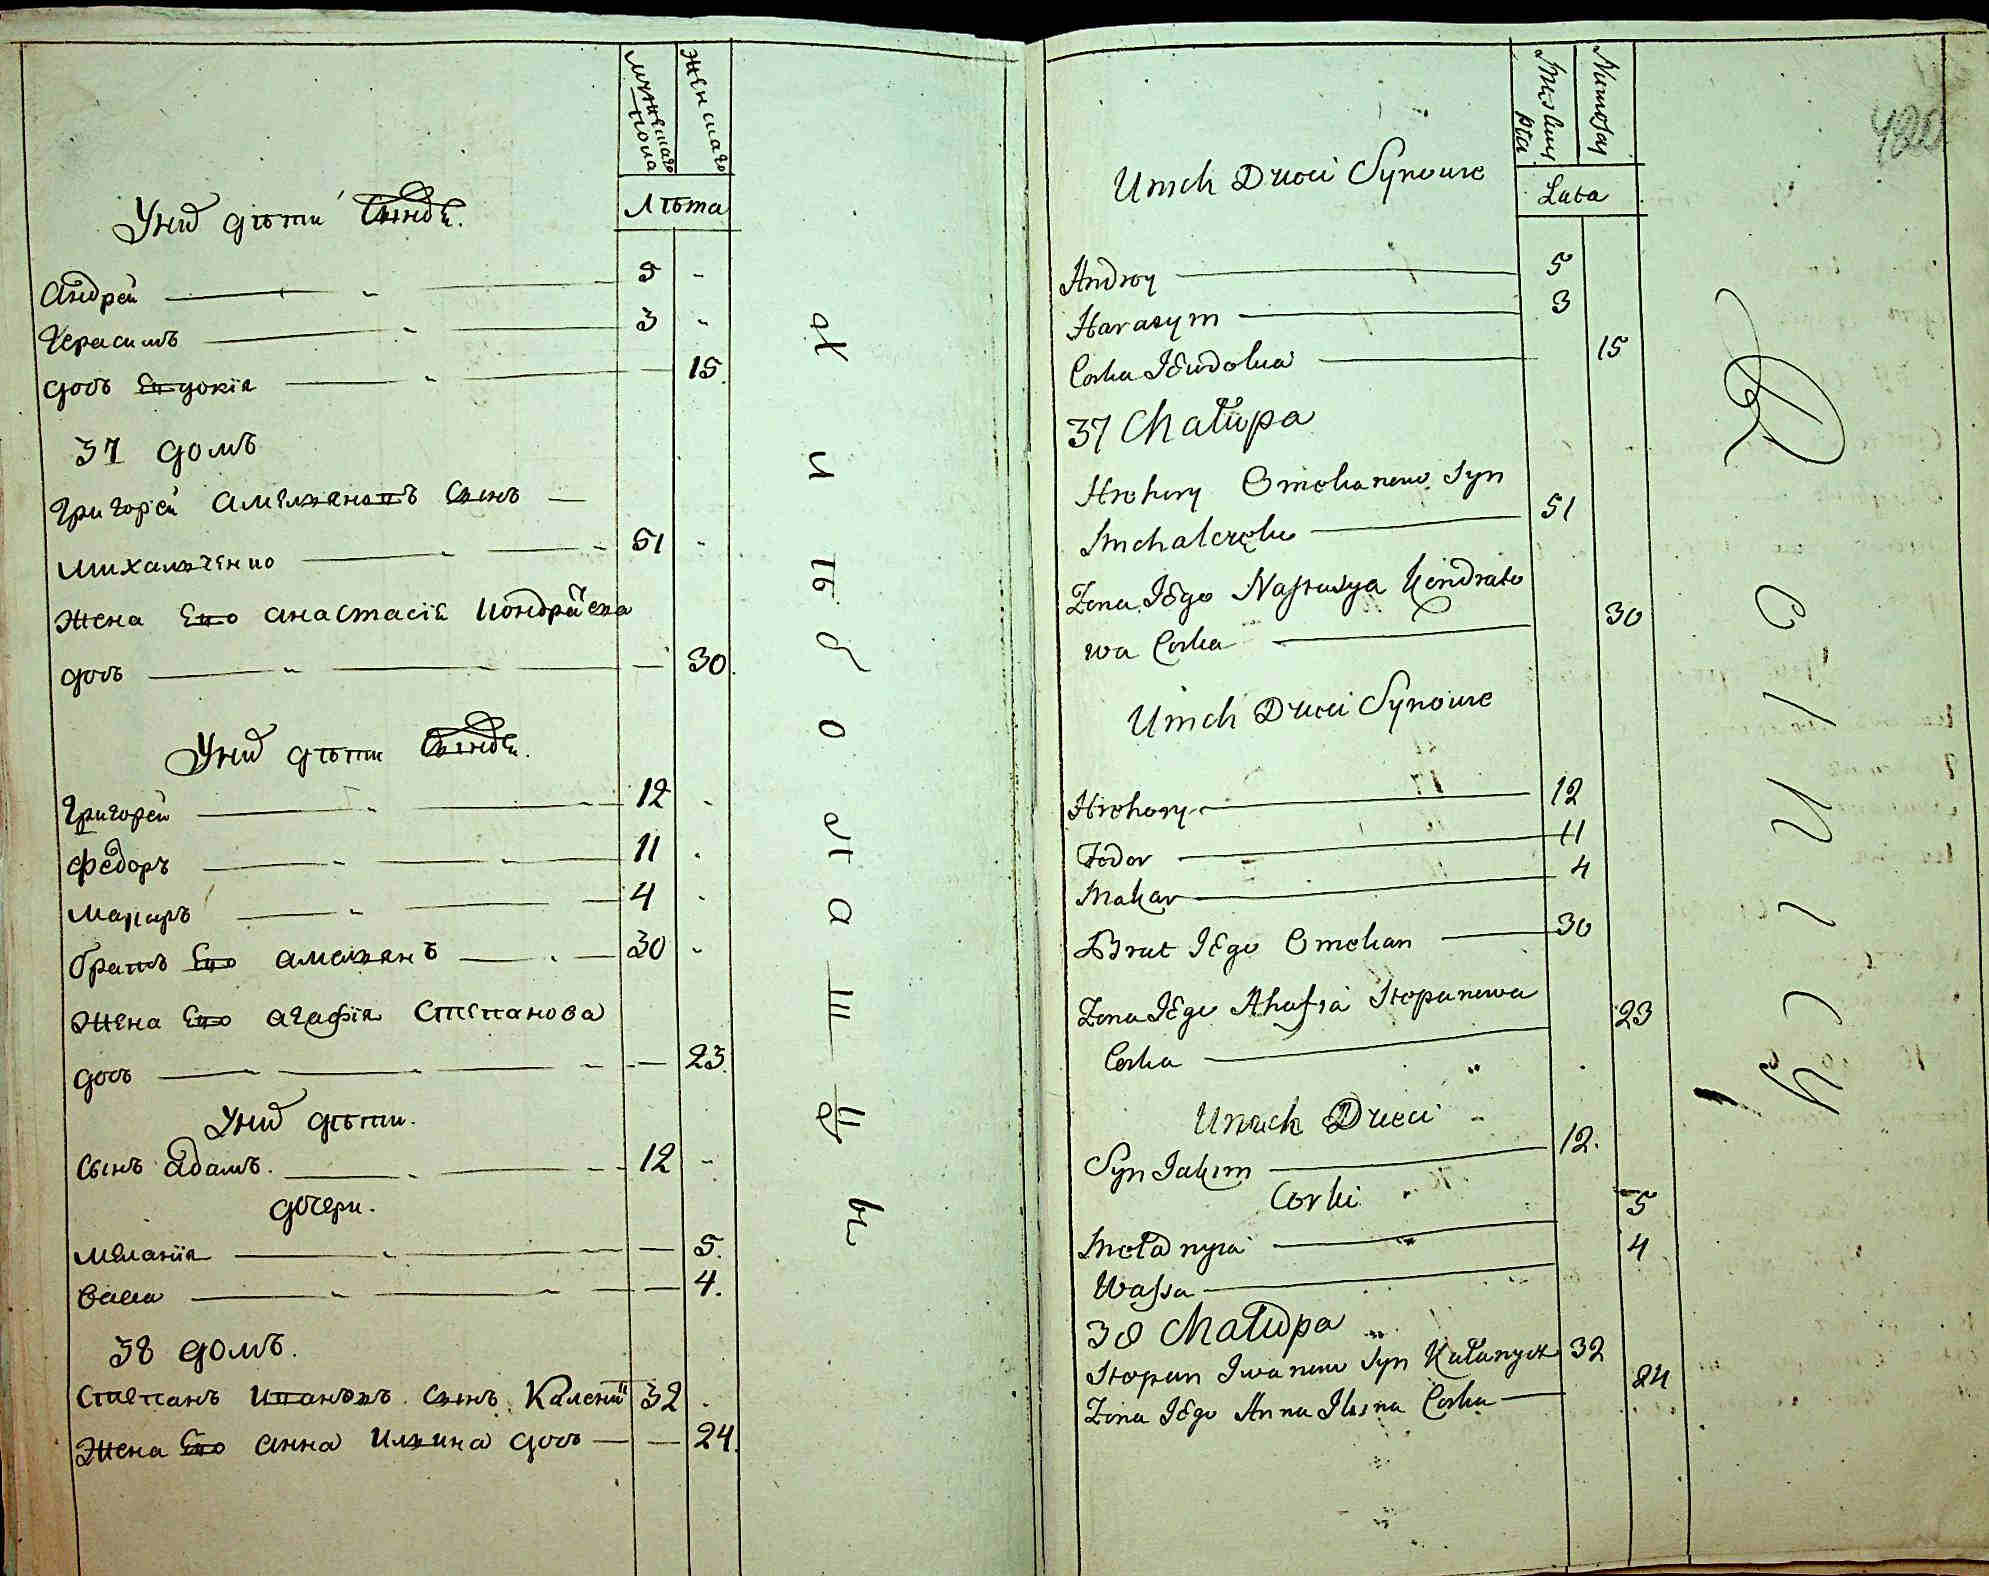 Мужеска пола
Женска
Лѣта
У них дѣти Сыновѣ.
Андрей 5 -
Герасимъ 3 -
дочь Евдокія 15.
37 домъ
Григорей Амельяновъ сынъ
Михальченко 51 -
Жена Его Анастасіе Кондратева
дочь 30.
У них дѣти Сыновѣ.
Григорей 12 -
Федоръ 11 -
Макаръ 4 -
братъ Его Амельянъ 30 -
Жена Его Агафія Степанова
дочь 23.
У них дѣти.
Сынъ Адамъ. 12 -
дочери.
Меланія 5.
Васса 4.
38 домъ.
Степанъ Ивановъ Сынъ Калений 32 -
Жена Его Анна Ильина дочь 24.
Х л ѣ б о п а ш ц ы
Męskiey płci
Lata
420
Unich Dzieci Synowie
Andrey 5
Harasym 3
Corka JEwdokia 15
37 Chałupa
Hrehory Omelianow Syn
Michalczęko 51
Zona JEgo Nastasya Kondrato
wa Corka 30
Unich Dzieci Synowie
Hrehory 12
Fedor 11
Makar 4
Brat JEgo Omelian 30
Zona JEgo Ahafia Stepanowa
Corka 23
Unich Dzieci
Syn Jakim 12.
Corki
Mełanyia 5
Wassa 4
38 Chałupa
Stepan Iwanow Syn Kałanycz 32
Zona JEgo Anna Ilina Corka 24
R o l n i c y